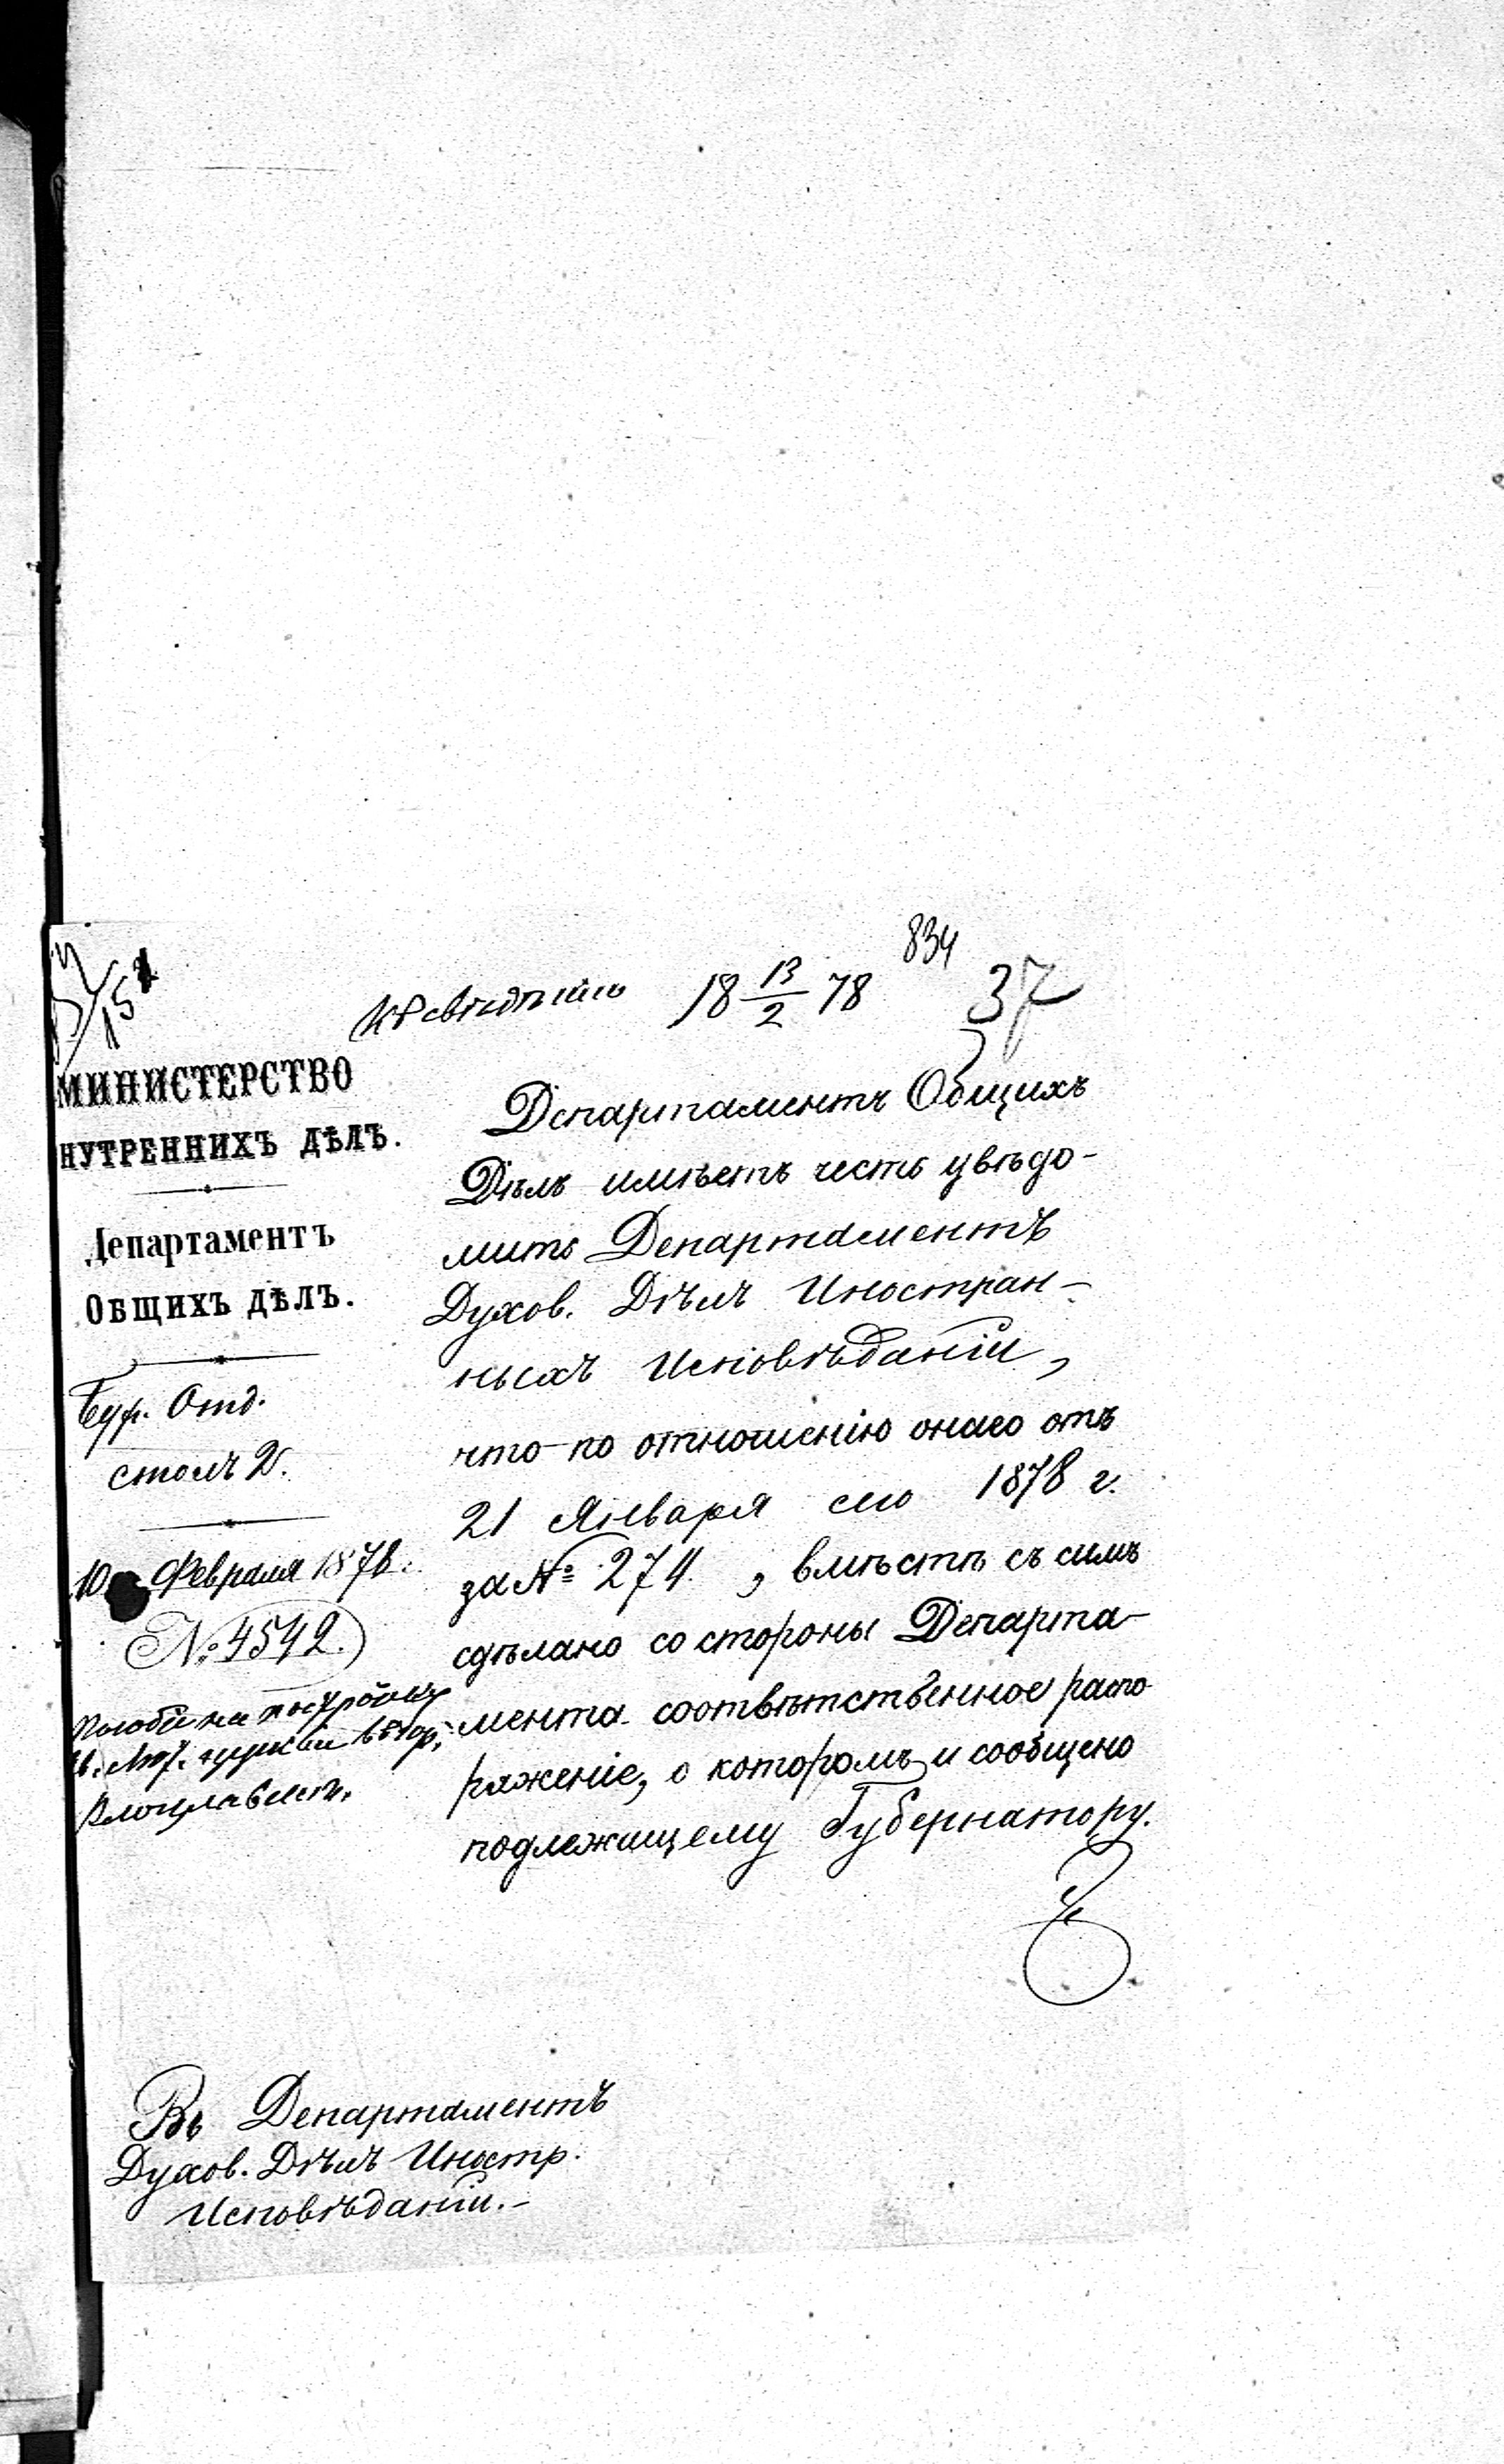 834
Къ свѣдѣнію 18 13/2 78 37
МИНИСТЕРСТВО
НУТРЕННИХЪ ДѢЛЪ.
Департаментъ
Общихъ дѣлъ.
Бур. Отд.
столъ 2.
10 Февраля 1878.
№ 4542.
Пособіи на постройку
Ев. Лют. церкви въ гор.
Влоцлавскѣ.
Департаментъ Общихъ
Дѣлъ имѣетъ честь увѣдо-
мить Департаментъ
Духов. Дѣлъ Иностран-
ныхъ Исповѣданій,
что по отношенію онаго отъ
21 Января сего 1878 г.
за № 274, вмѣстѣ съ симъ
сдѣлано со стороны Департа-
мента соотвѣтственное распо
ряженіе, о которомъ и сообщено
подлежащему Губернатору.
Въ Департаментъ
Духов. Дѣлъ Иностр.
Исповѣданій.-